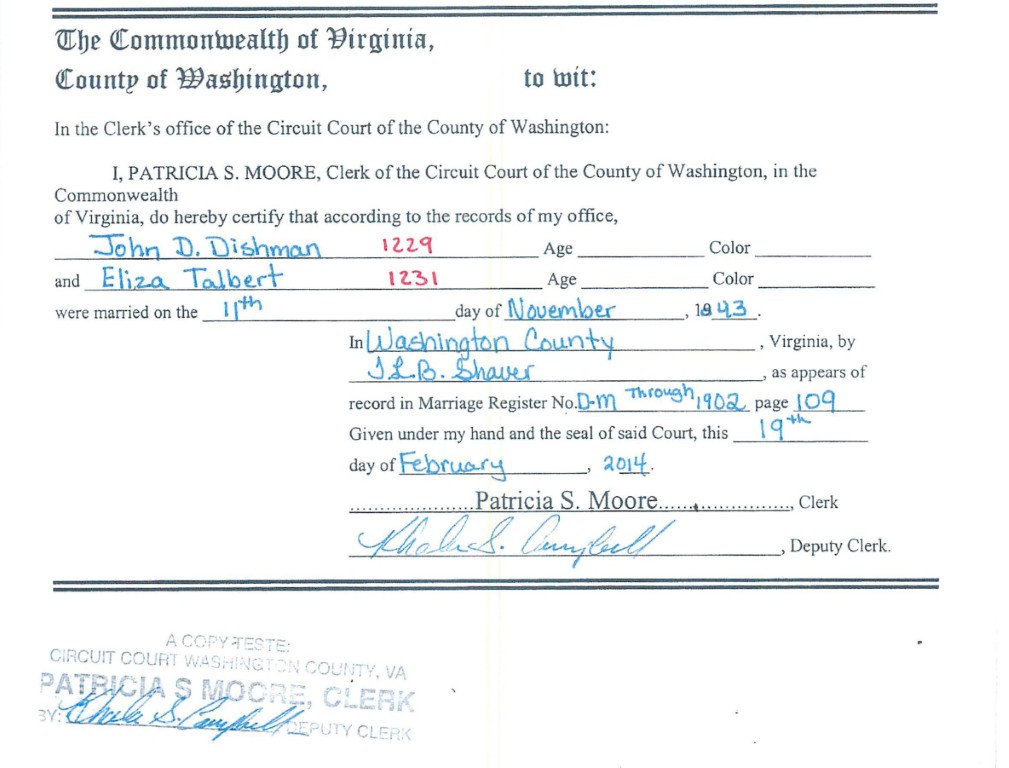 The Commonwealth of Virginia,
County of Washington, to wit:
In the Clerk's office of the Circuit Court of the County of Washington:
I, PATRICIA S. MOORE, Clerk of the Circuit Court of the County of Washington, in the
Commonwealth
of Virginia, do hereby certify that according to the records of my office,
John D. Dishman 1229 Age Color
and Eliza Talbert 1231 Age Color
were married on the 11th day of November, 1843.
In Washington County, Virginia, by
J.L.B. Shaver, as appears of
record in Marriage Register No. D-M Through 1902 page 109
Given under my hand and the seal of said Court, this 19th
day of February, 2014.
Patricia S. Moore, Clerk
S. Campbell, Deputy Clerk.
A COPY-TESTE:
CIRCUIT COURT WASHINGTON COUNTY, VA
PATRICIA S MOORE, CLERK
BY: S. Campbell DEPUTY CLERK